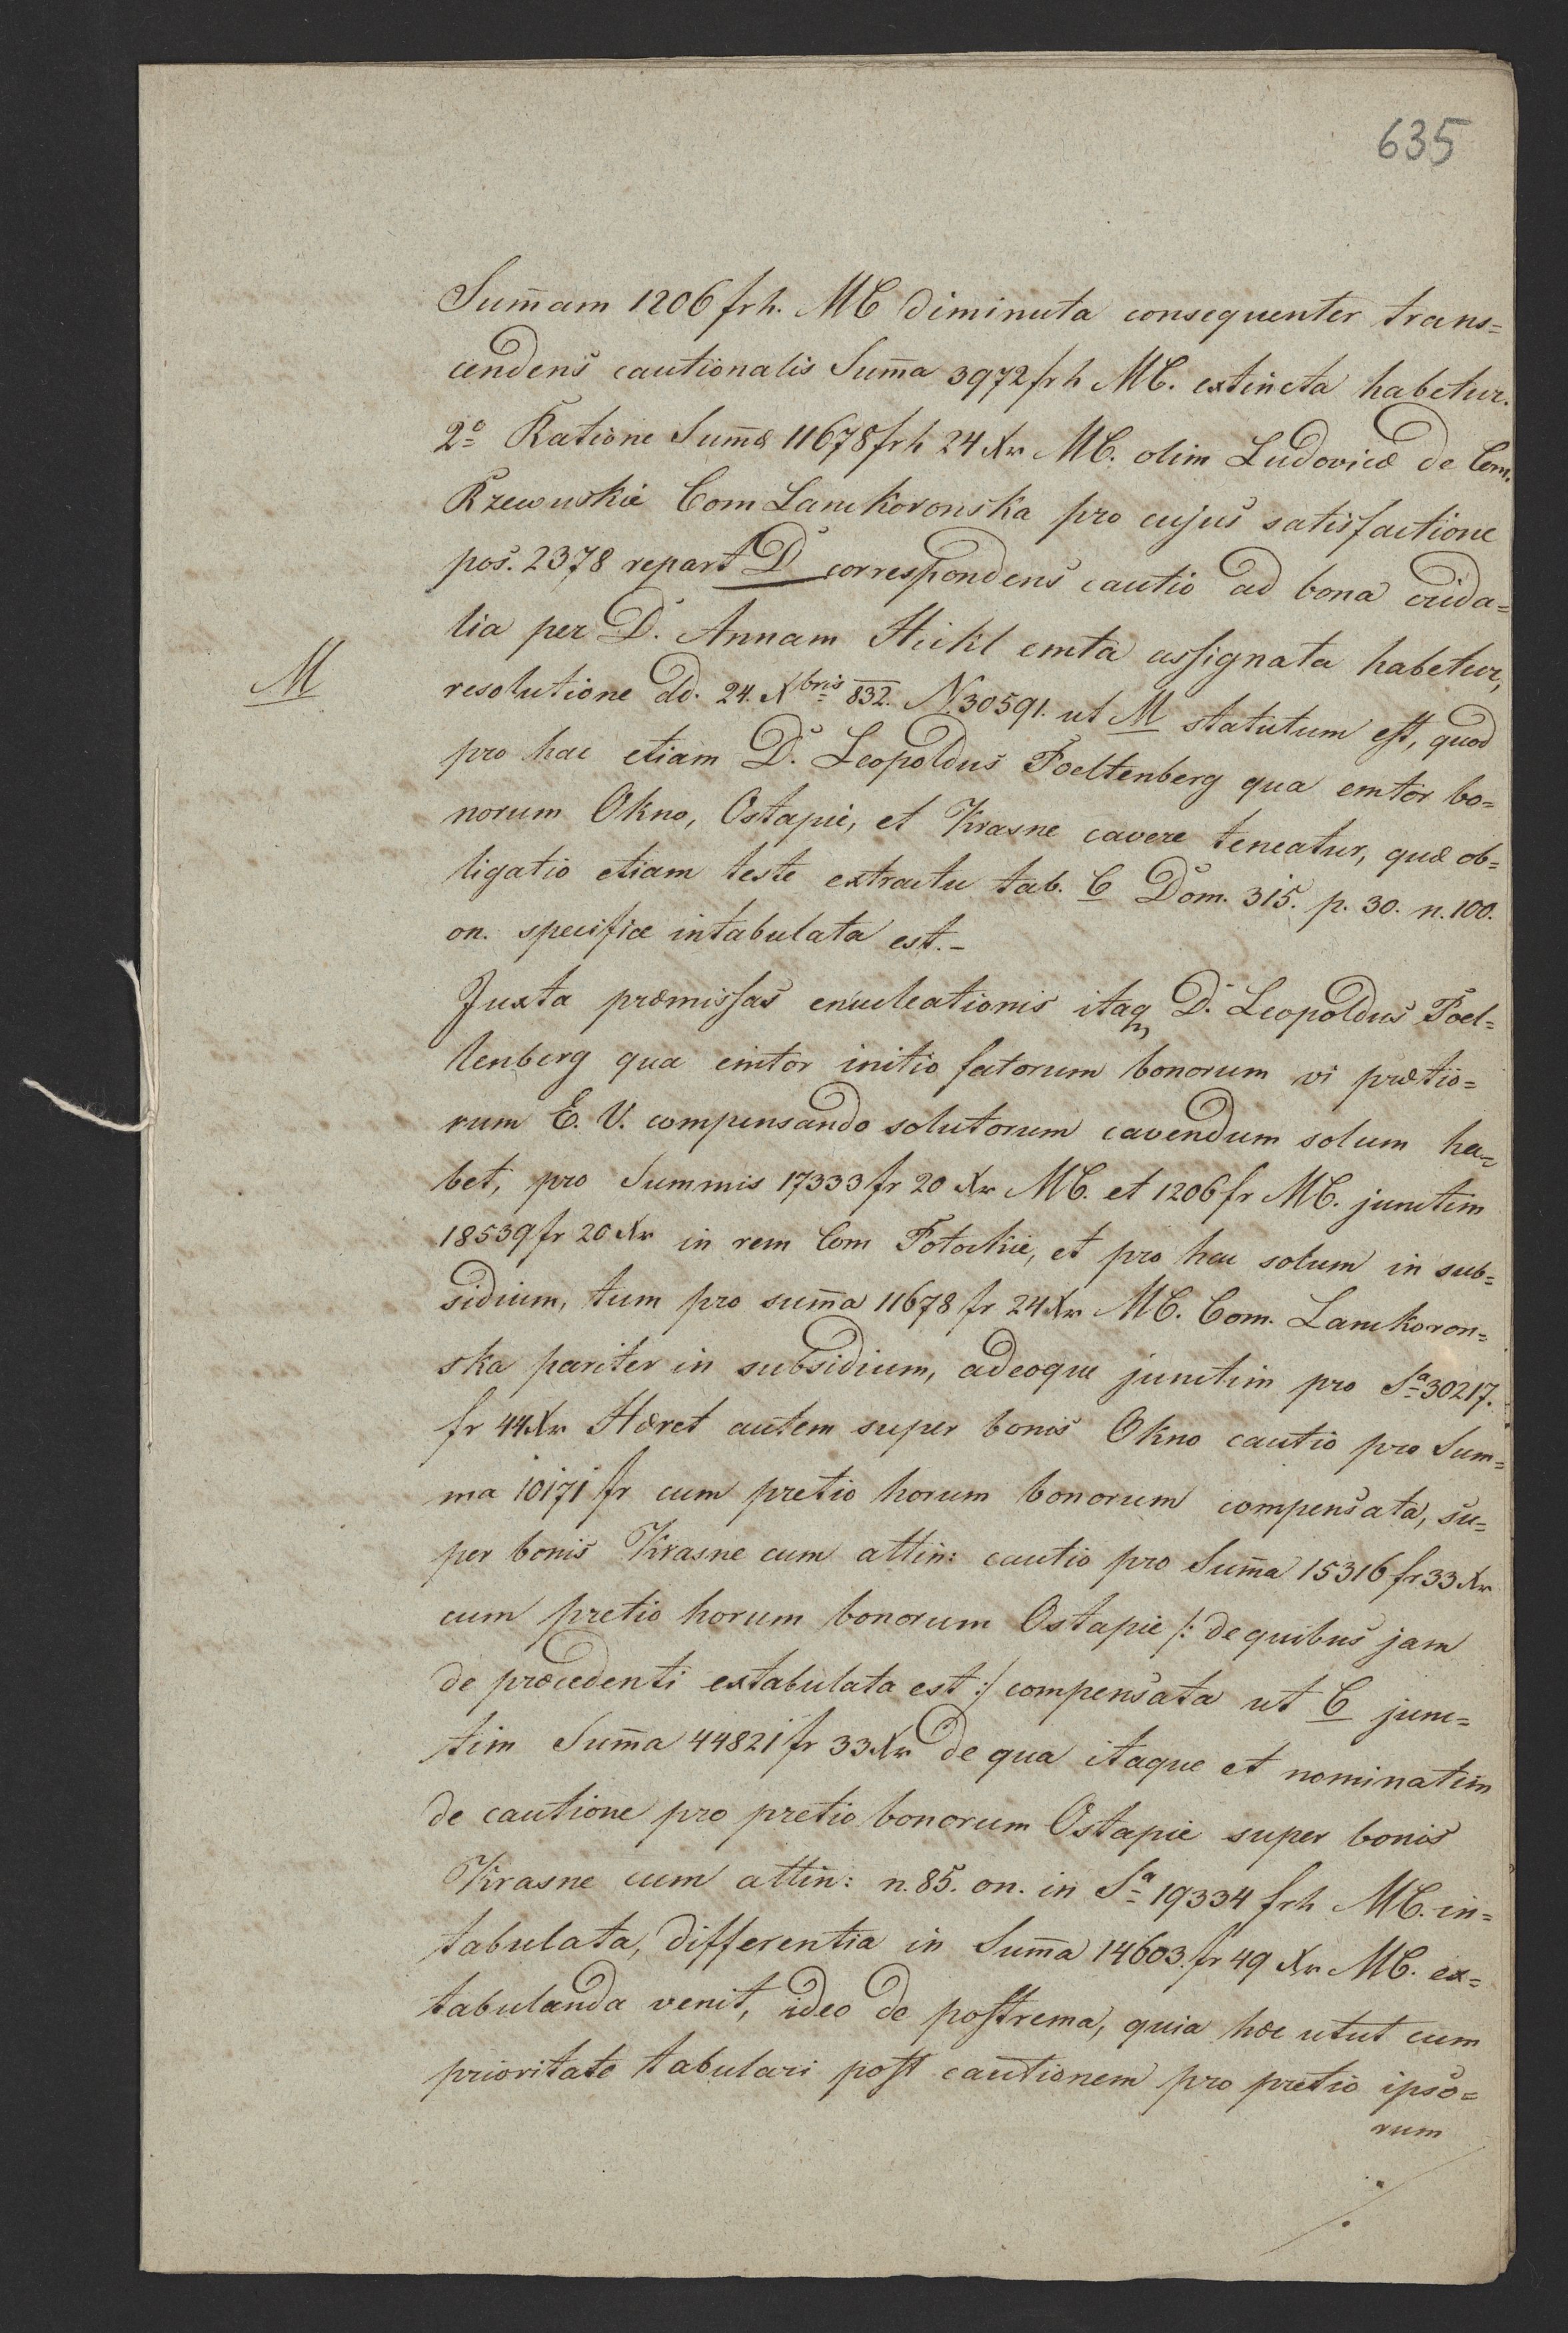 635
Sum̄am 1206 frh. MC diminuta consequenter trans=
cendens cautionalis Sum̄a 3972 frh MC. extincta habetur.
2º Ratione Sum̄æ 11678 frh 24 Xr MC. olim Ludovicæ de Com.
Rzewuskie Com Lanckoronska pro cujus satisfactione
pos. 2378 repart D correspondens cautio ad bona crida=
lia per D. Annam Hickl emta assignata habetur,
M
resolutione dd. 24. Xbris 832. N. 30591. ut M statutum est, quod
pro hac etiam D. Leopoldus Foeltenberg qua emtor bo=
norum Okno, Ostapie, et Krasne cavere teneatur, quæ ob=
ligatio etiam teste extractu tab. C Dom. 315. p. 30. n. 100.
on. specifice intabulata est.-
Juxta præmissas enucleationis itaq D. Leopoldus Foel=
tenberg qua emtor initio fatorum bonorum vi prætio=
rum E. V. compensando solutorum cavendum solum ha=
bet, pro Summis 17333 fr 20 Xr MC. et 1206 fr MC. junctim
18539 fr 20 Xr in rem Com Potockie, et pro hac solum in sub=
sidium, tum pro sum̄a 11678 fr 24 Xr MC. Com. Lanckoron=
ska pariter in subsidium, adeoque junctim pro Sª 30217.
fr 44 Xr Hæret autem super bonis Okno cautio pro Sum=
ma 10171 fr cum pretio horum bonorum compensata, su=
per bonis Krasne cum attin: cautio pro Sum̄a 15316 fr 33 Xr
cum pretio horum bonorum Ostapie /: de quibus jam
de præcedenti extabulata est :/ compensata ut C junc=
tim Sum̄a 44821 fr 33 Xr de qua itaque et nominatim
de cautione pro pretio bonorum Ostapie super bonis
Krasne cum attin: n. 85. on. in Sª 19334 frh MC. in=
tabulata, differentia in Sum̄a 14603. fr 49 Xr MC. ex=
tabulanda venit, ideo de postrema, quia hæc utut cum
prioritate tabulari post cautionem pro pretio ipso=
rum